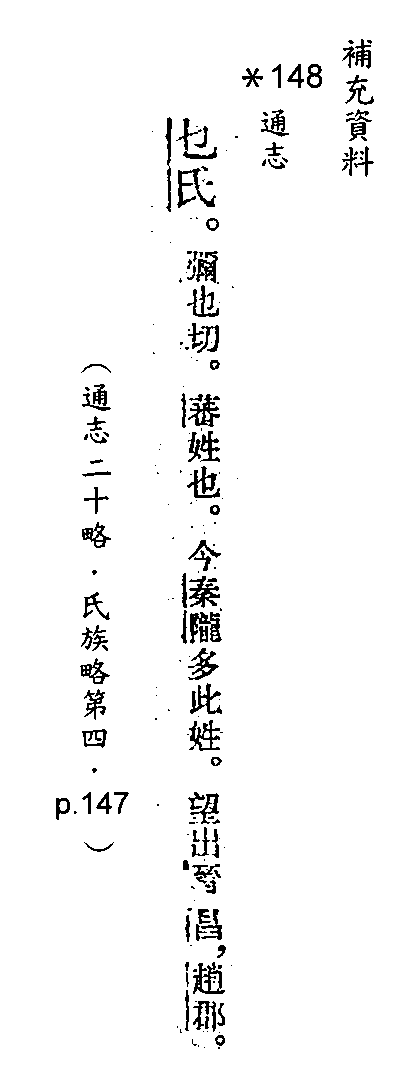 補充資料
*148
通志
乜氏。彌也切。蕃姓也。今秦隴多此姓。望出晉昌,趙郡。
(通志二十略.氏族略第四.p.147)